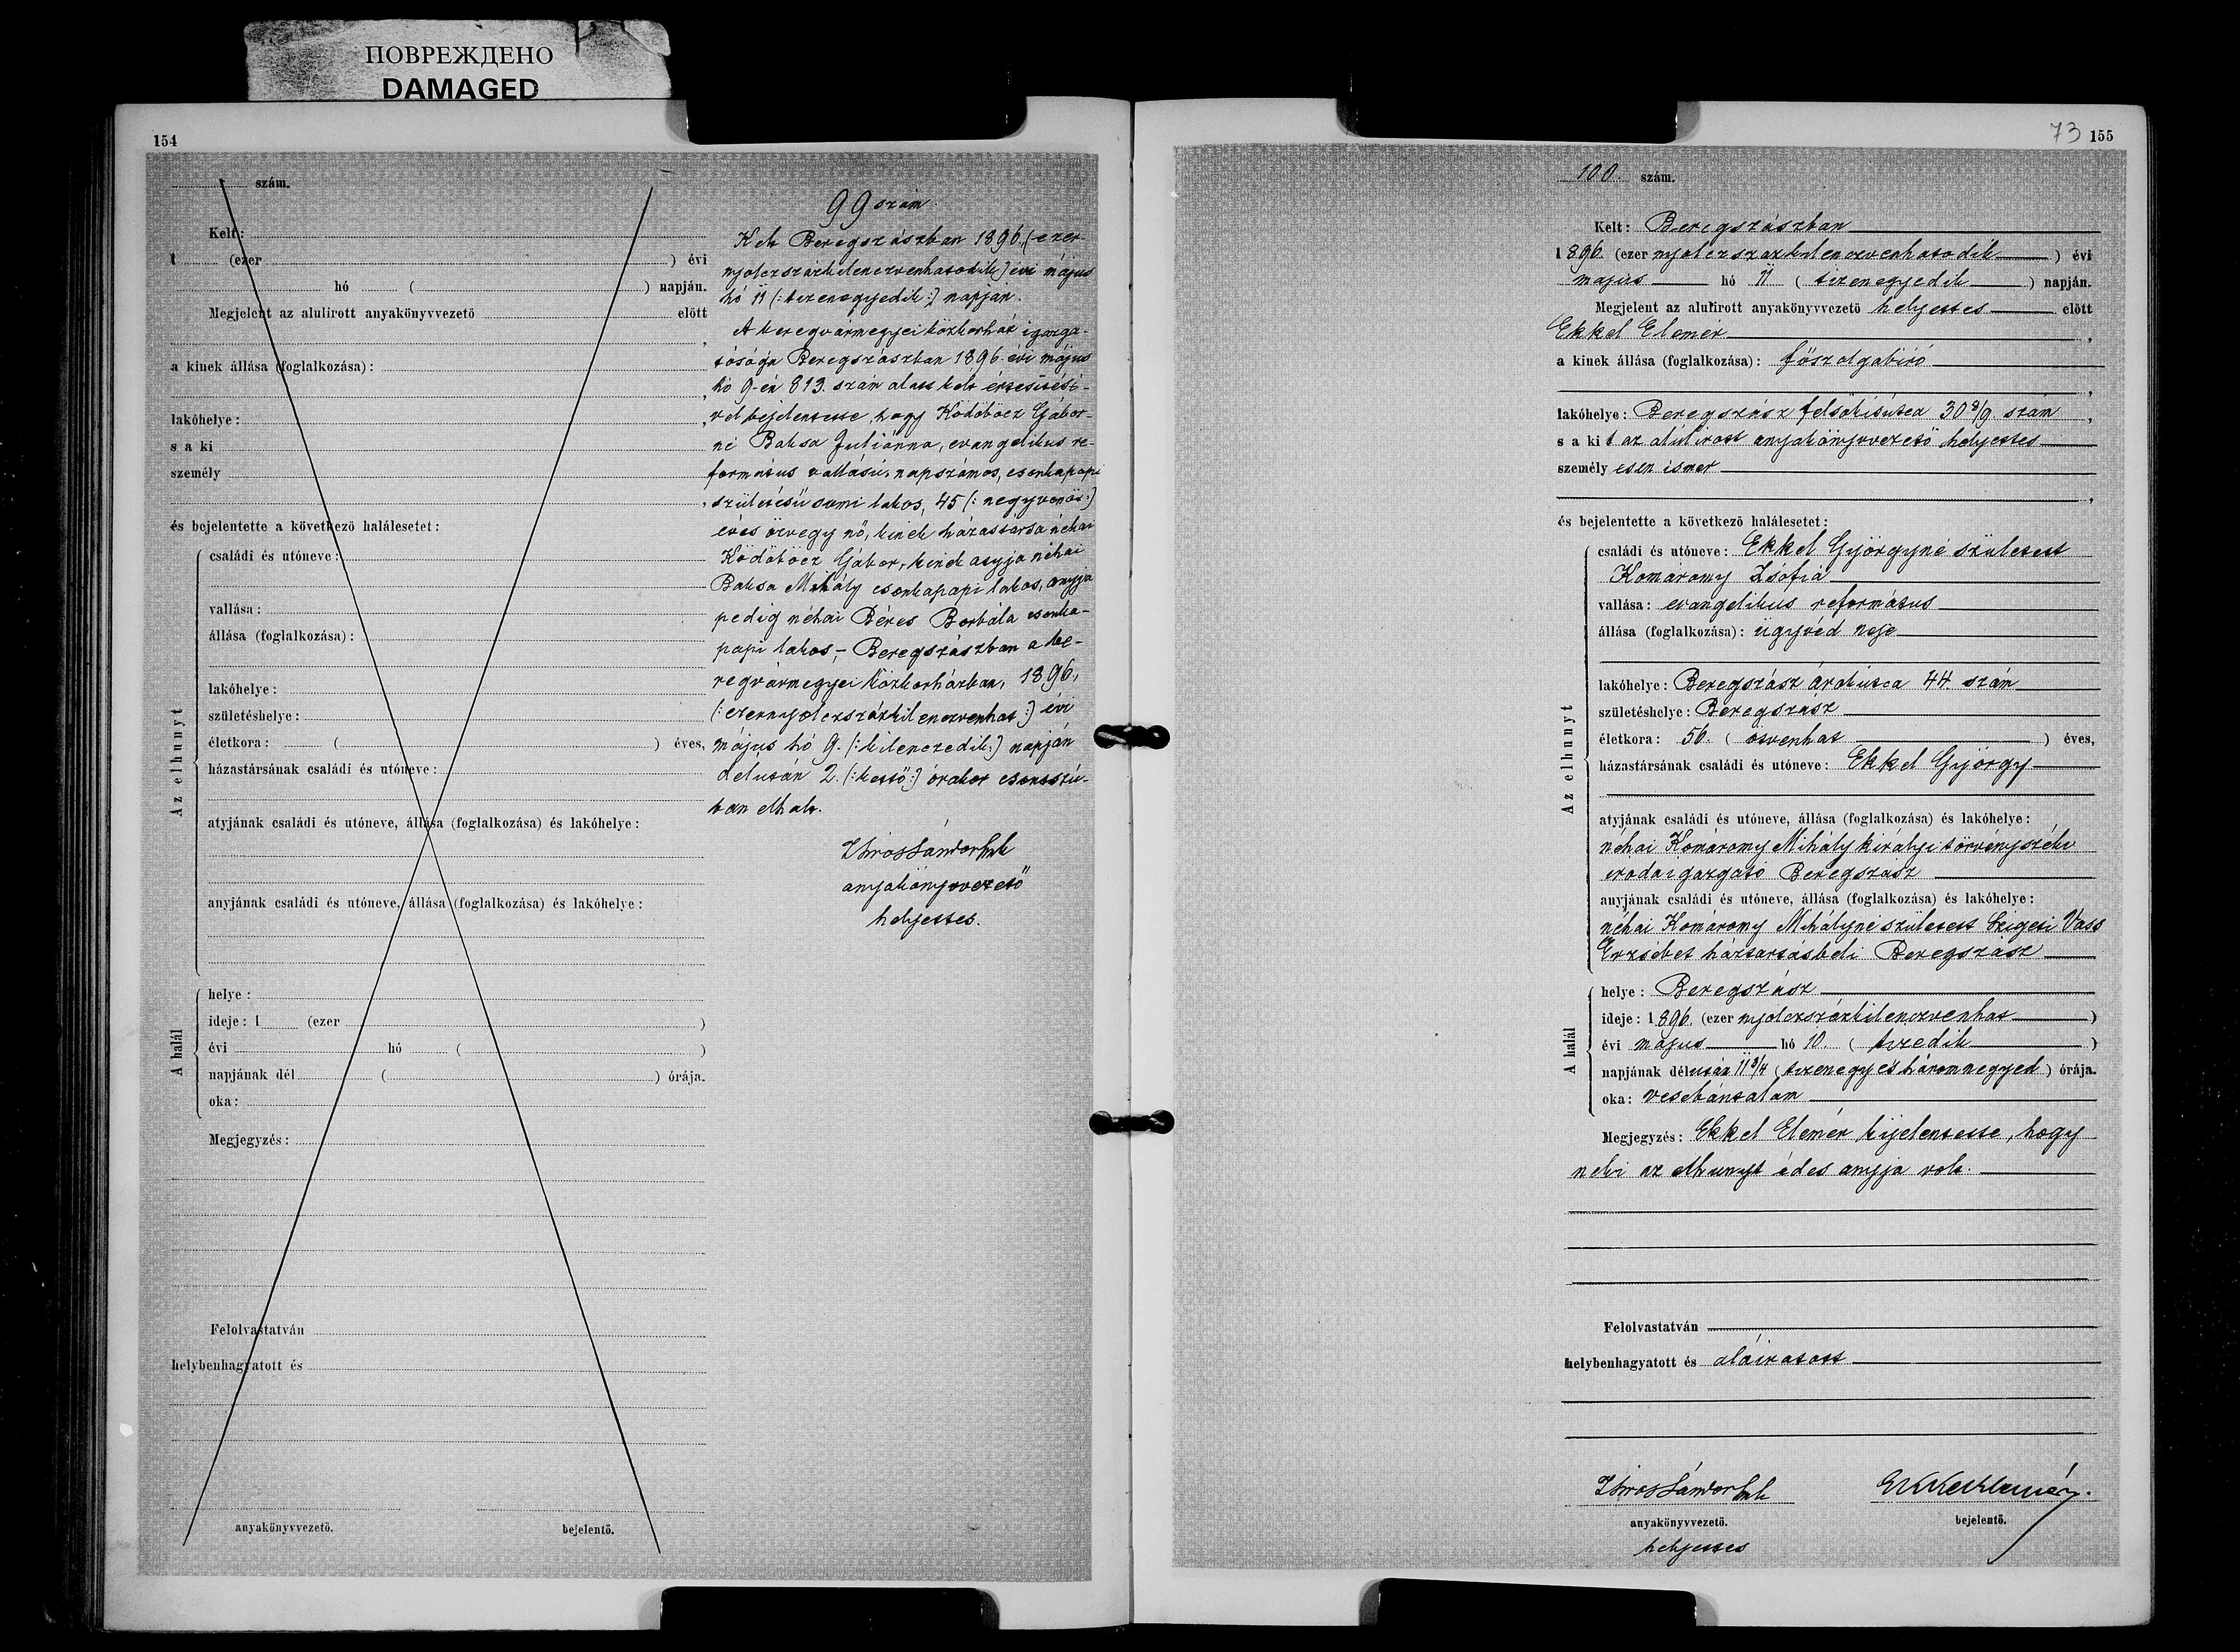 ПОВРЕЖДЕНО
DAMAGED
154
szám.
Kelt:
1 (ezer ) évi
hó ( ) napján.
Megjelent az alulirott anyakönyvvezető előtt
,
a kinek állása (foglalkozása):
,
lakóhelye: ,
s a ki
személy
,
és bejelentette a következő halálesetet:
Az elhunyt
családi és utóneve:
vallása:
állása (foglalkozása):
lakóhelye:
születéshelye:
életkora: ( ) éves,
házastársának családi és utóneve:
atyjának családi és utóneve, állása (foglalkozása) és lakóhelye:
anyjának családi és utóneve, állása (foglalkozása) és lakóhelye:
A halál
helye:
ideje: 1 (ezer )
évi hó ( )
napjának dél ( ) órája.
oka:
Megjegyzés:
Felolvastatván
helybenhagyatott és
anyakönyvvezető. bejelentő.
99 szám.
Kelt Beregszászban 1896. (ezer-
nyolczszázkilenczvenhatodik) évi május
hó 11 (: tizenegyedik :) napján.
A beregvármegyei közkorház igazga-
tósága Beregszászban 1896. évi május
hó 9-én 813. szám alatt kelt értesitésé-
vel bejelentette, hogy Ködöböcz Gábor-
né Baksa Juliánna, evangelikus re-
formátus vallású, napszámos, csonkapapi
születésű sumi lakos, 45 (: negyvenöt :)
éves özvegy nő, kinek házastársa néhai
Ködöböcz Gábor, kinek atyja néhai
Baksa Mihály csonkapapi lakos, anyja
pedig néhai Béres Borbála csonka-
papi lakos, – Beregszászban a be-
regvármegyei közkorházban, 1896,
(: ezernyolczszázkilenczvenhat :) évi
május hó 9. (: kilenczedik :) napján
délután 2. (: kettő :) órakor csontszú-
ban elhalt.
anyakönyvvezető
helyettes.
73 155
100. szám.
Kelt: Beregszászban
1896. (ezer nyolczszázkilenczvenhatodik ) évi
május hó 11 ( tizenegyedik ) napján.
Megjelent az alulirott anyakönyvvezető helyettes előtt
Ekkel Elemér ,
a kinek állása (foglalkozása): főszolgabiró
,
lakóhelye: Beregszász felsőkisútcza 308/9. szám ,
s a kit az alulirott anyakönyvvezető helyettes
személyesen ismer
,
és bejelentette a következő halálesetet:
Az elhunyt
családi és utóneve: Ekkel Györgyné született
Komáromy Zsófia
vallása: evangelikus református
állása (foglalkozása): ügyvéd neje
lakóhelye: Beregszász árokútcza 44. szám
születéshelye: Beregszász
életkora: 56. ( ötvenhat ) éves,
házastársának családi és utóneve: Ekkel György
atyjának családi és utóneve, állása (foglalkozása) és lakóhelye:
néhai Komáromy Mihály királyi törvényszéki
irodaigazgató Beregszász
anyjának családi és utóneve, állása (foglalkozása) és lakóhelye:
néhai Komáromy Mihályné született Szigeti Vass
Erzsébet háztartásbeli Beregszász
A halál
helye: Beregszász
ideje: 1896. (ezer nyolczszázkilenczvenhat )
évi május hó 10. ( tizedik )
napjának délután 11 3/4 (tizenegy és háromnegyed ) órája.
oka: vesebántalom
Megjegyzés: Ekkel Elemér kijelentette, hogy
neki az elhunyt édes anyja volt.
Felolvastatván
helybenhagyatott és aláiratott
Ekkel Elemér.
anyakönyvvezető. bejelentő.
helyettes